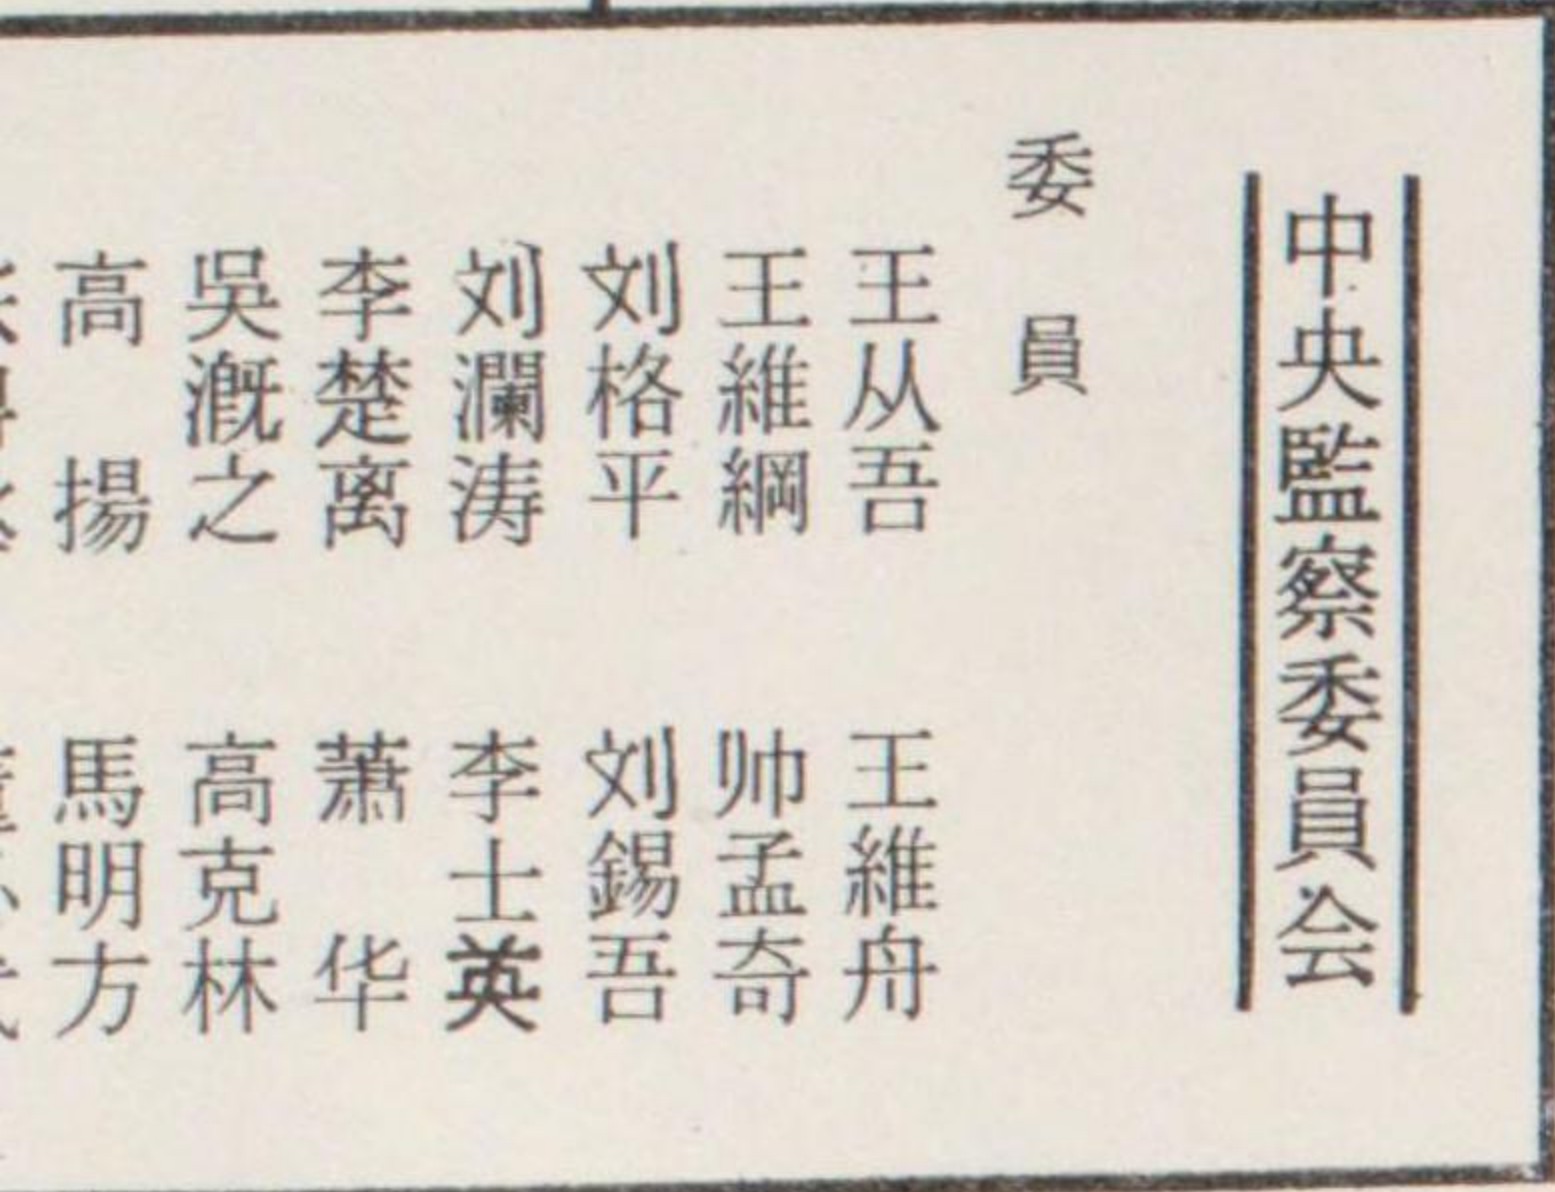 中央監察委員会
委員
王从吾
王維舟
王維綱
帅孟奇
刘格平
刘錫吾
刘瀾涛
李士英
李楚离
萧华
吳溉之
高克林
高揚
馬明方